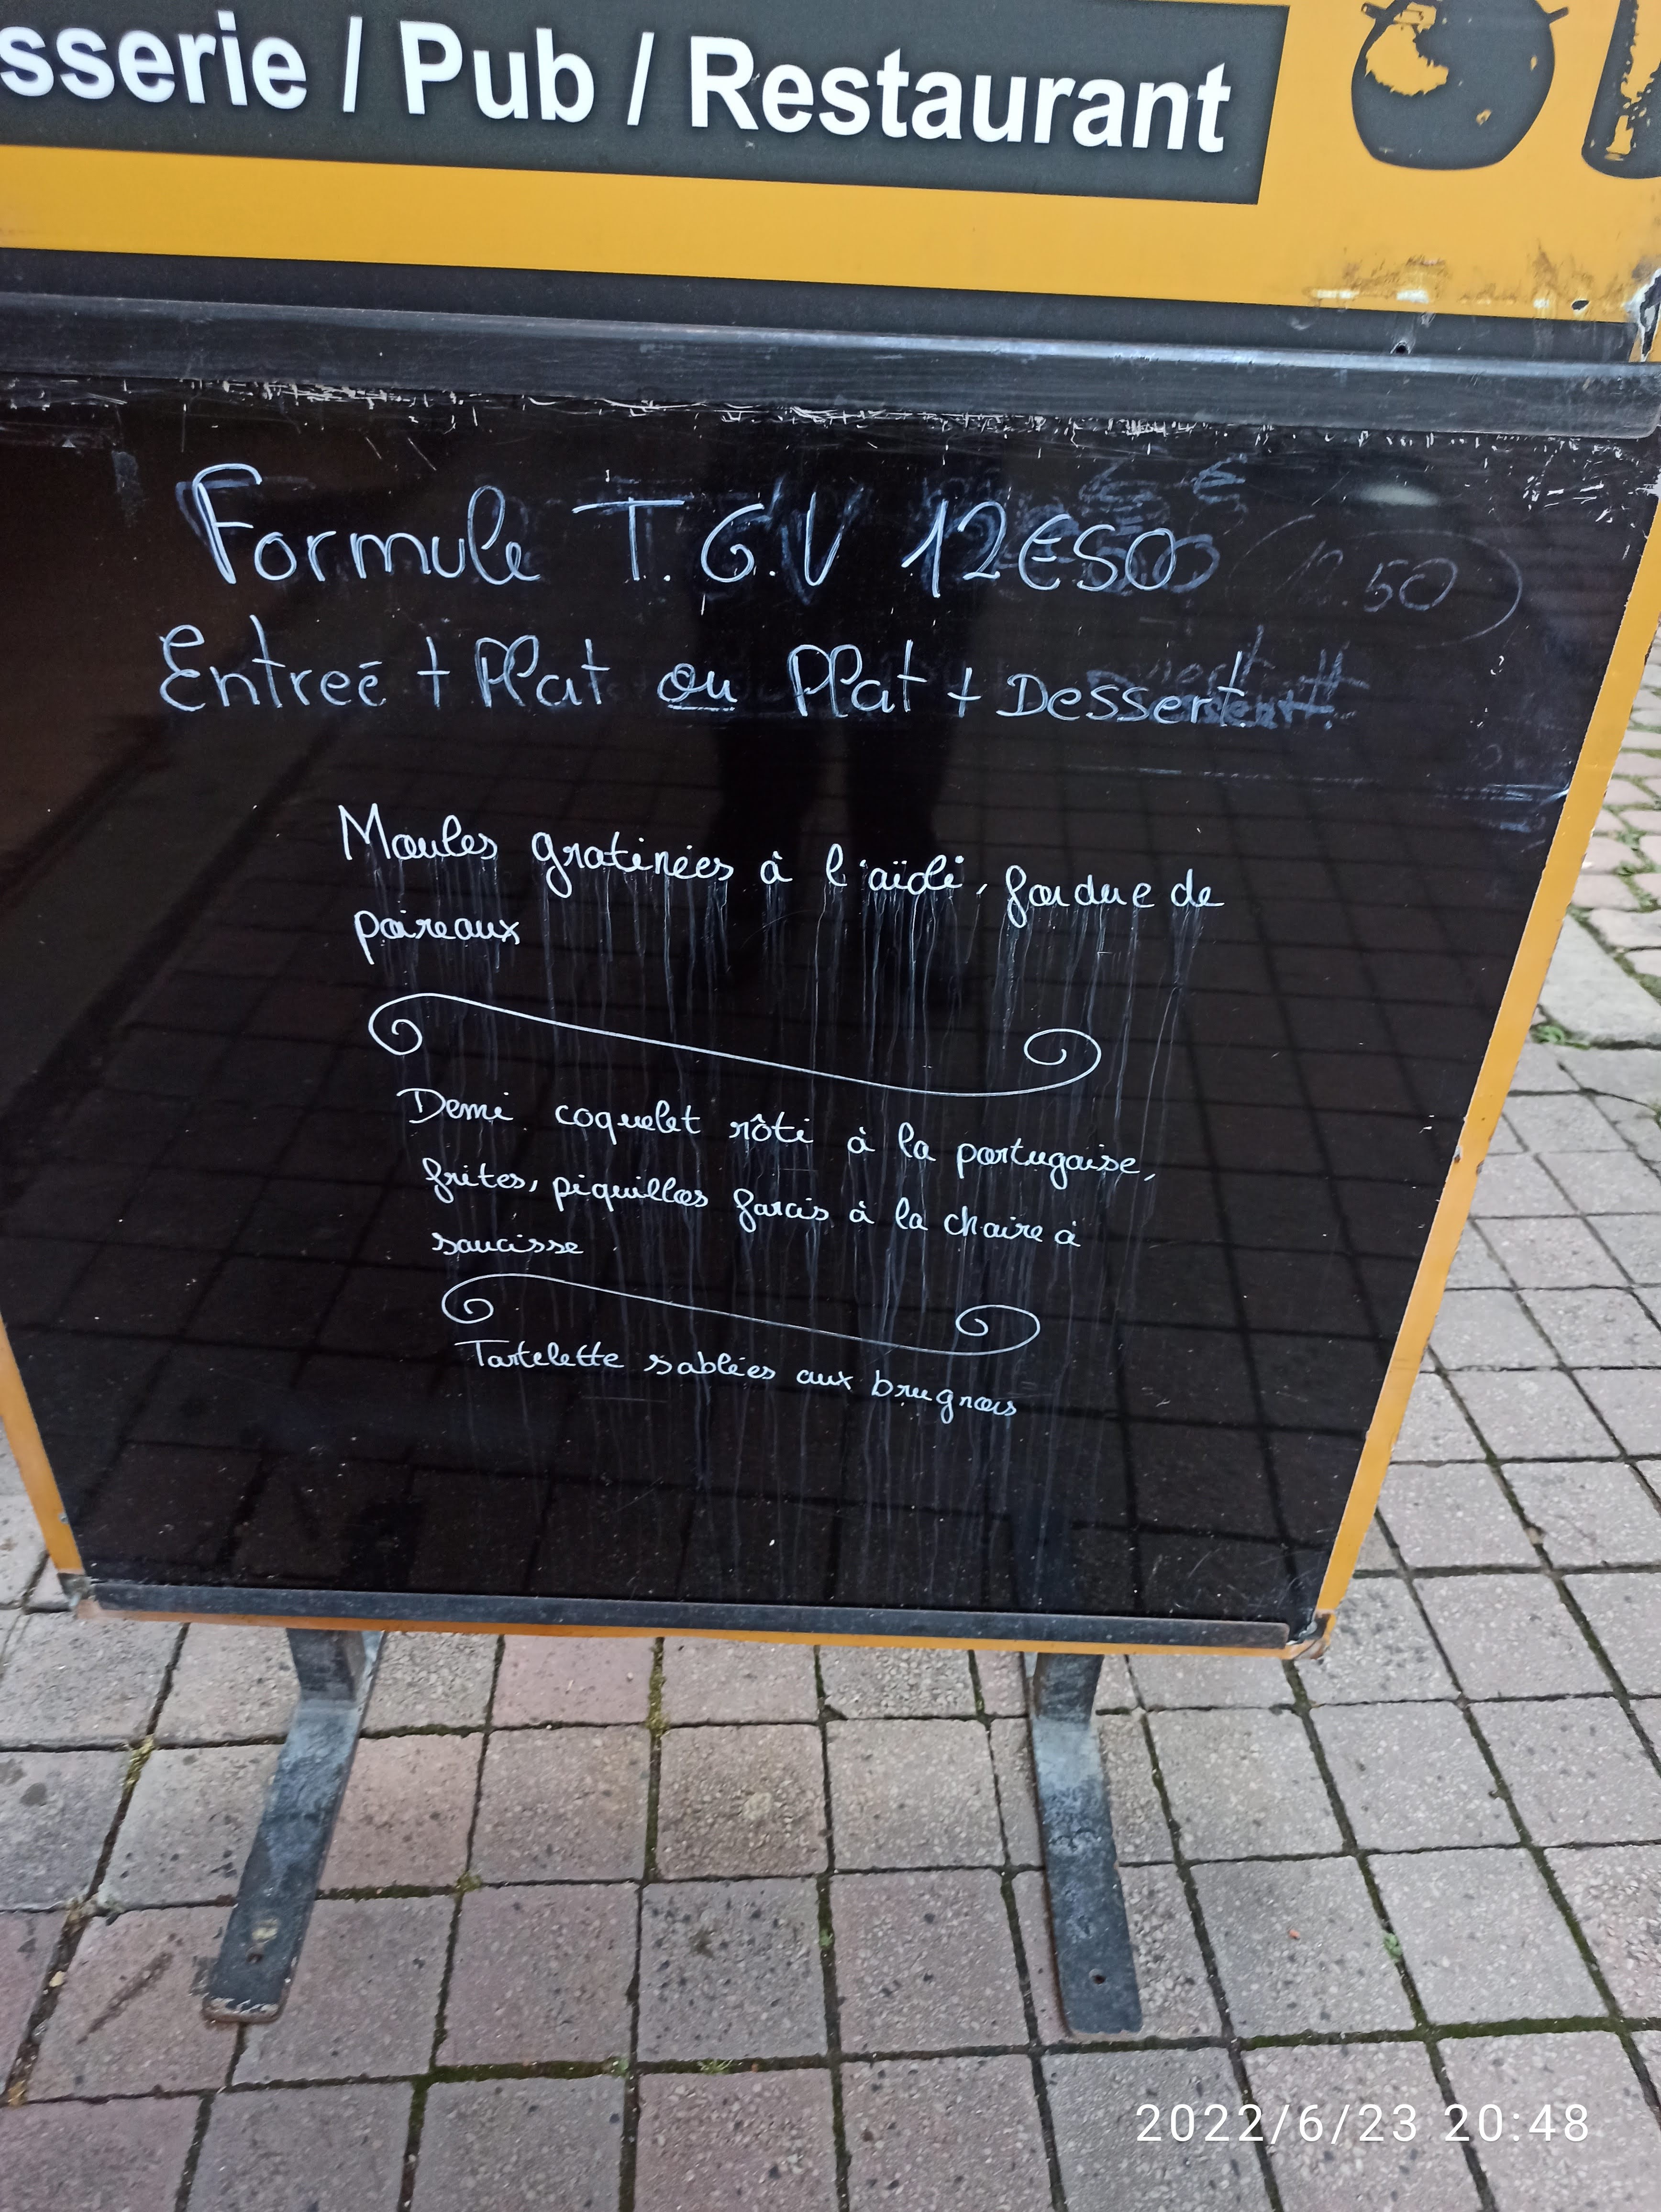 sserie / Pub / Restaurant
Formule T.G.V 12€50
12.50
Entreé + Plat ou Plat + Dessert
Moules gratinées à l'aïoli, fondue de
poireaux
Demi coquelet rôti à la portugaise,
frites, piquillos farcis à la chaire à
saucisse
Tartelette sablées aux brugnons
2022/6/23 20:48